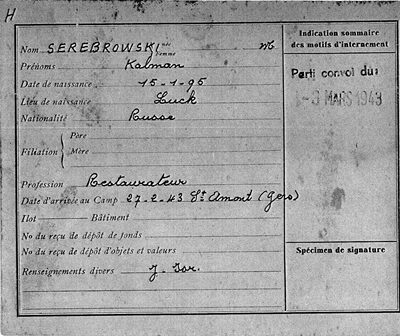 H
Nom SEREBROWSKI née
Femme
Prénoms Kalman
Date de naissance 15-1-95
Lieu de naissance Luck
Nationalité Russe
Filiation { Père
Mère
Profession Restaurateur
Date d'arrivée au Camp 27-2-43 St Amont (Gers)
Ilot Bâtiment
No du reçu de dépôt de fonds
No du reçu de dépôt d'objets et valeurs
Renseignements divers
Indication sommaire
des motifs d'internement
Parti convoi du
-3 MARS 1943
Spécimen de signature